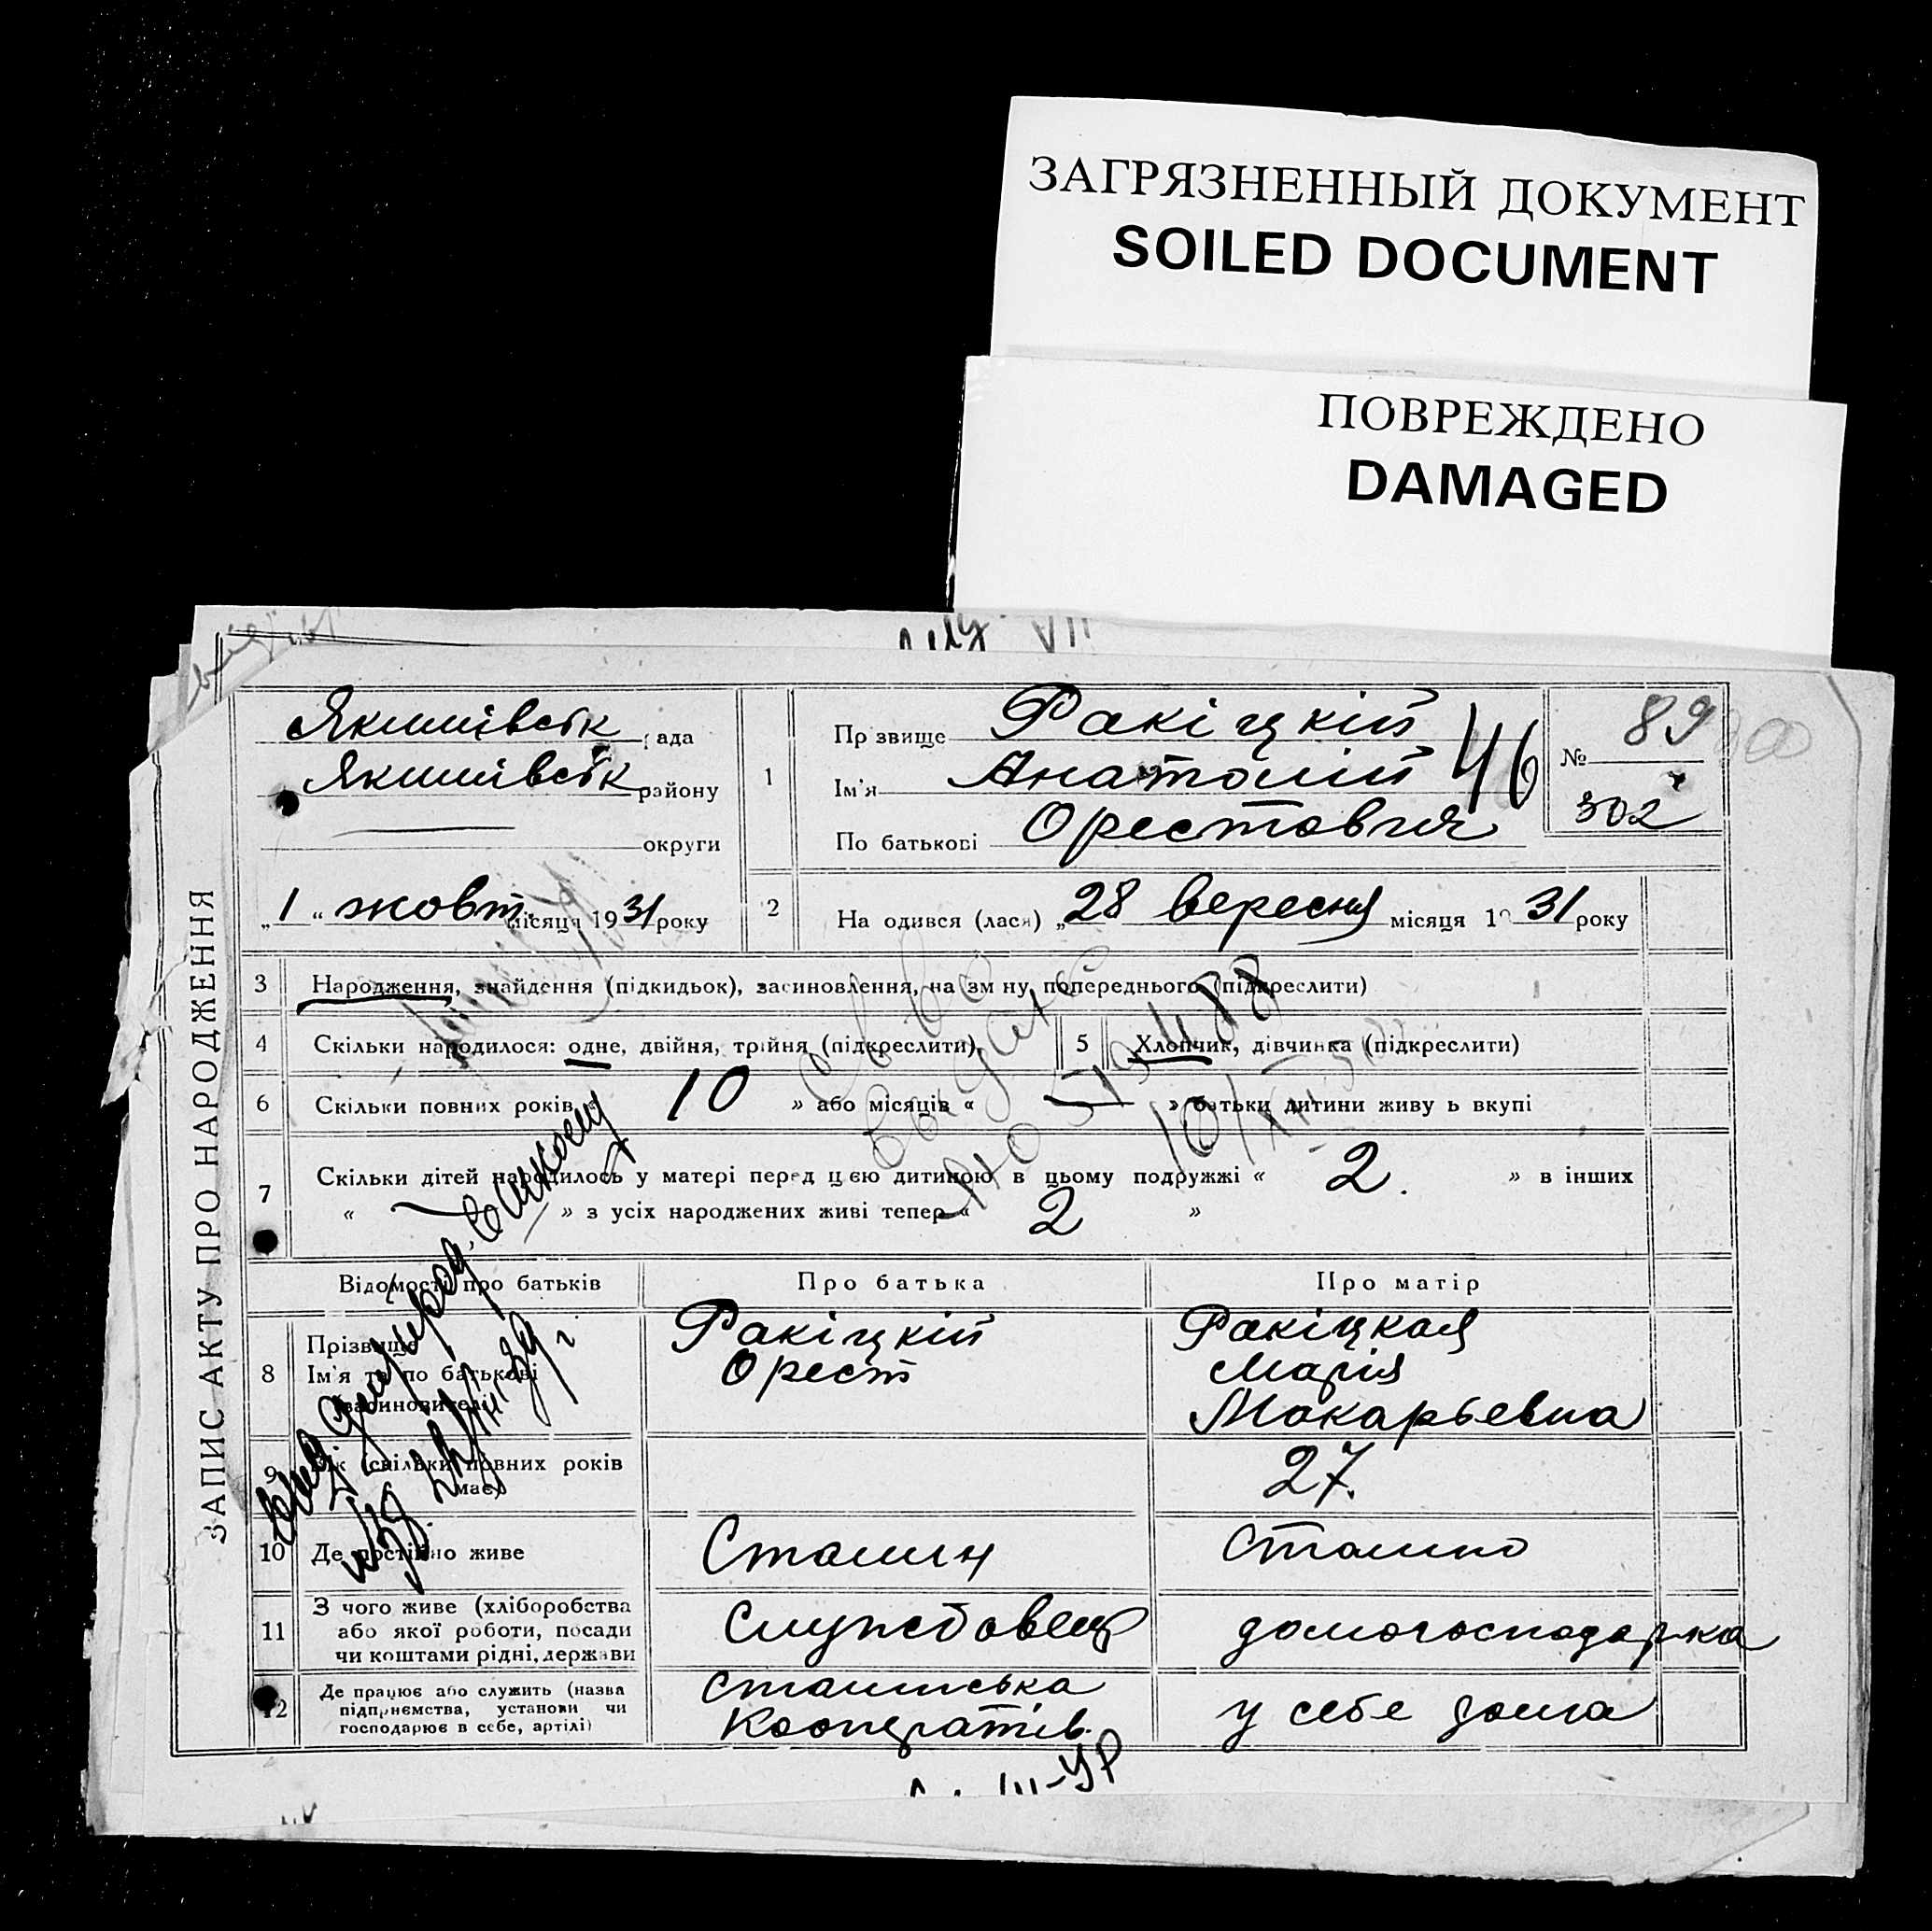 ЗАГРЯЗНЕННЫЙ ДОКУМЕНТ
SOILED DOCUMENT
ПОВРЕЖДЕНО
DAMAGED
ЗАПИС АКТУ ПРО НАРОДЖЕННЯ
рада
району
округи
„1“ жовт. місяця 1931 року
1
Прізвище Ракіцкій
Ім'я Анатолій
По батькові Орестович
46
№ 89
302
2
На одився (лася) „28 вересня місяця 1931 року
3 Народження, знайдення (підкидьок), засиновлення, на зм ну попереднього (підкреслити)
4 Скільки народилося: одне, двійня, трійня (підкреслити).
5 Хлопчик, дівчинка (підкреслити)
6 Скільки повних років « 10 » або місяців « — » батьки дитини живу ь вкупі
7 Скільки дітей народилось у матері перед цією дитиною в цьому подружжі « 2. » в інших
« — » з усіх народжених живі тепер « 2 »
Відомості про батьків
Про батька
Про матір
8 Прізвище
Ім'я та по батькові
(засиновителі)
Ракіцкій
Орест
Ракіцкая
Марія
Макарьевна
9 Вік (скільки повних років має)
27.
10 Де постійно живе
Сталин
Сталіно
11 З чого живе (хліборобства
або якої роботи, посади
чи коштами рідні, держави
Службовець
домогосподарка
12 Де працює або служить (назва
підприємства, установи чи
господарює в себе, артілі)
Сталинська
Кооператів.
у себе дома